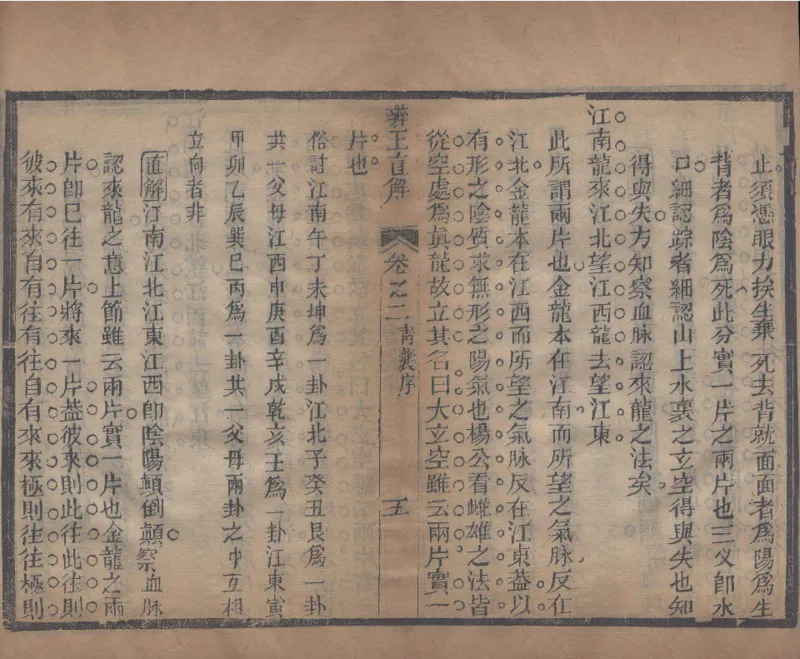 止須憑眼力挨生棄死去背就面面者爲陽爲生
背者爲陰爲死此分實一片之兩片也三义卽水
口細認踪者細認山上水裏之立空得與失也知
得與失方知察血脉認來龍之法矣
江南龍來江北望江西龍去望江東
此所謂兩片也金龍本在江南而所望之氣脉反在
江北金龍本在江西而所望之氣脉反在江東葢以
有形之陰質求無形之陽氣也楊公看雌雄之法皆
從空處爲眞龍故立其名曰大立空雖云兩片實一
片也
辨正直解 卷之二 青囊序 五
俗註江南午丁未坤爲一卦江北子癸丑艮爲一卦
共一父母江西申庚酉辛戌乾亥壬爲一卦江東寅
甲卯乙辰巽巳丙爲一卦共一父母兩卦之中互相
立向者非
直解江南江北江東江西卽陰陽顛倒顛察血脉
認來龍之意上節雖云兩片實一片也金龍之兩
片卽巳往一片將來一片葢彼來則此往此往則
彼來有來自有往有往自有來來極則往往極則